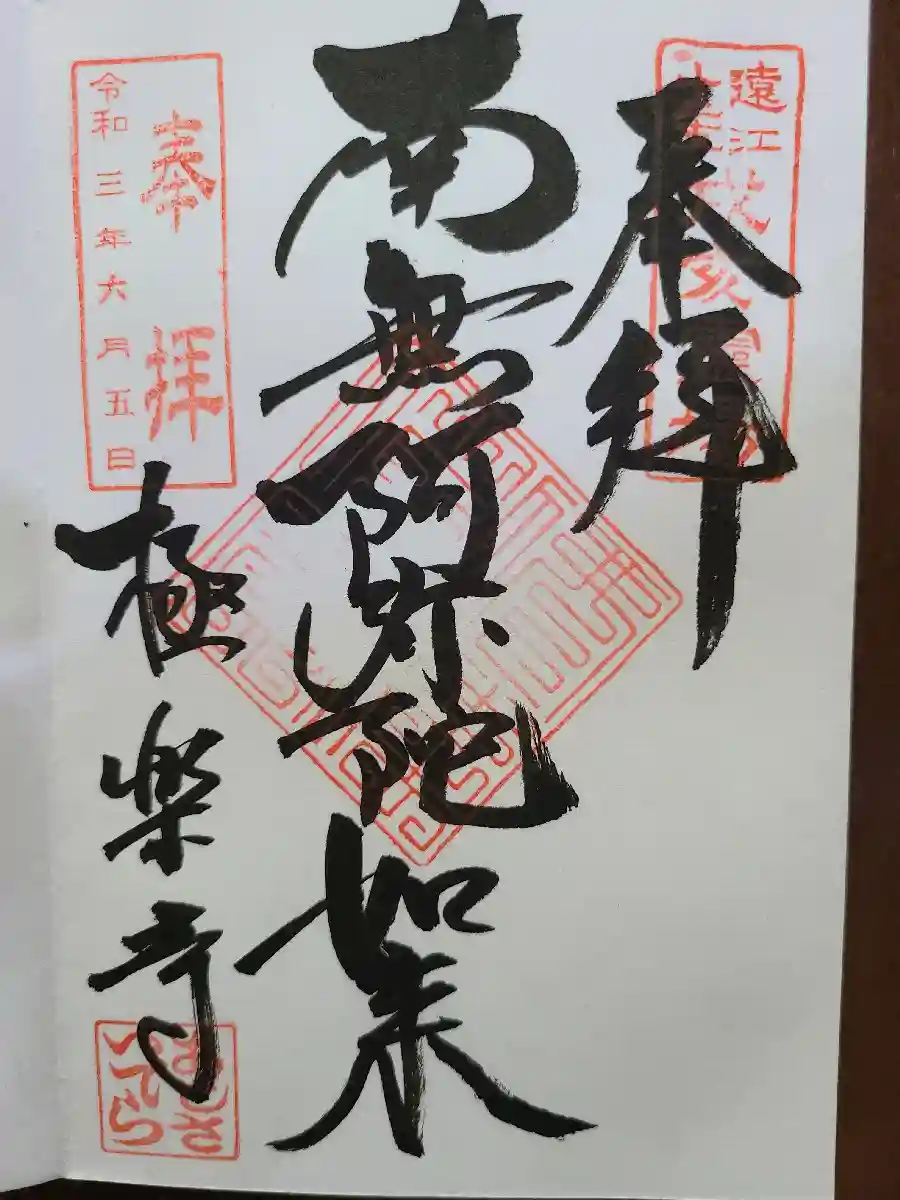 奉拝
遠江
南無阿弥陀如来
奉拝
令和三年六月五日
極楽寺
あじさ
いでら